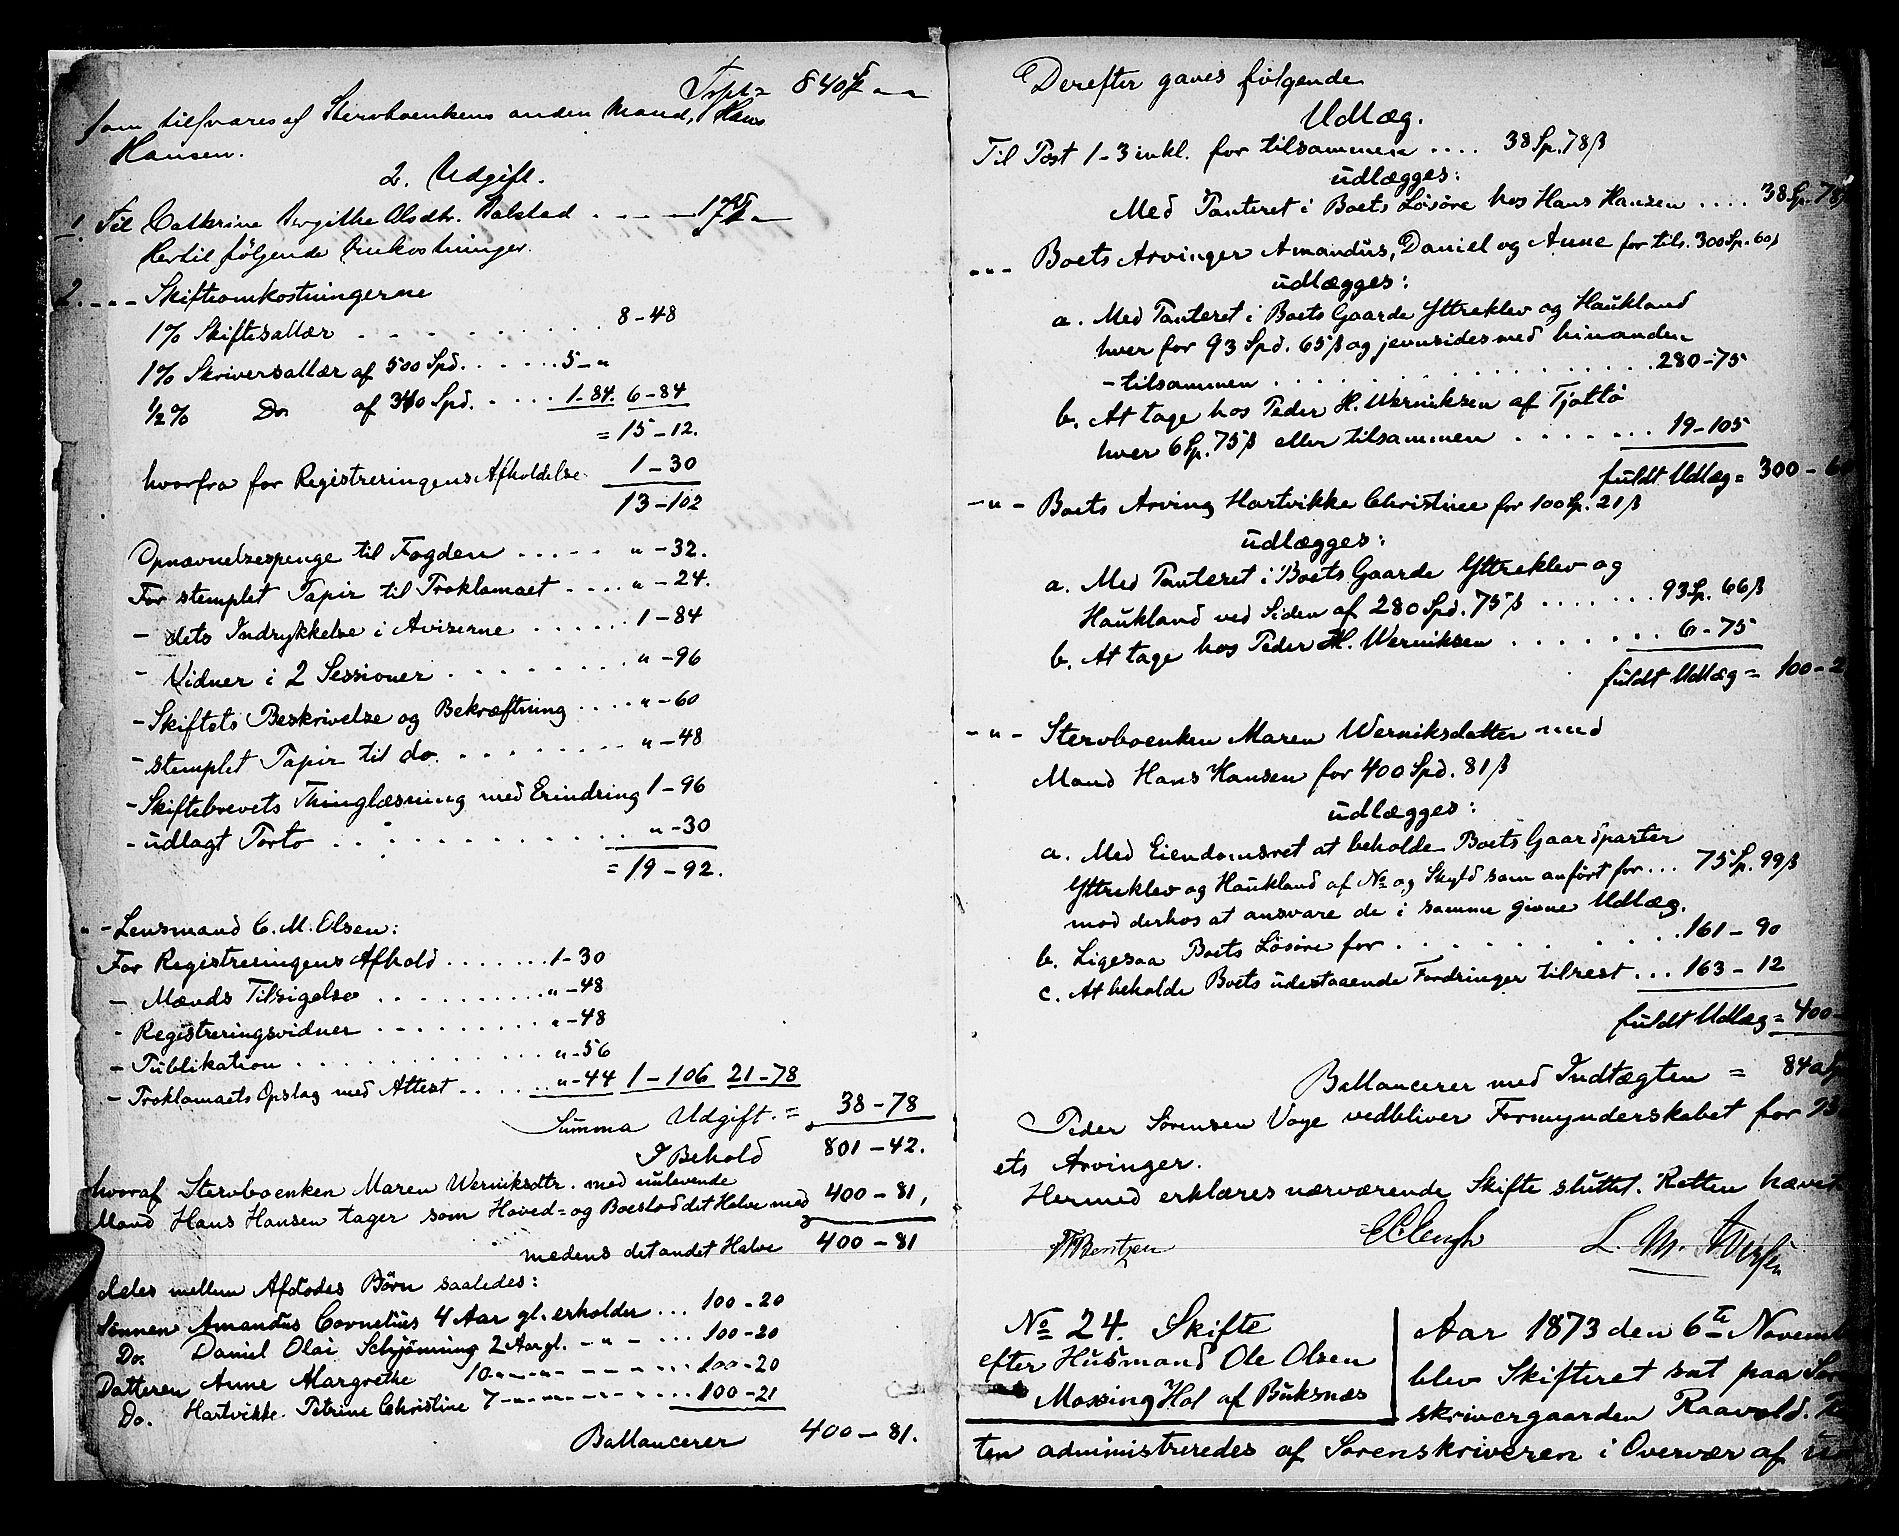 Trspt = 840 Sp " "
som tilsvares af Stervboenkens anden Mand, Hans
Hansen.
2. Udgift.
1. Til Cathrine Birgithe Olsdtr. Balstad . . . . 17 Spd "
Hertil følgende Omkostninger.
2. - " - Skifteomkostningerne
1% Skiftesallær . . . . . . . . . . 8 - 48
1% Skriversallær af 500 Spd. . . . . . . 5 - "
1/2 % Do. af 340 Spd. . . . . 1 - 84. 6 - 84
= 15 - 12.
hvorfra for Registreringens Afholdelse. 1 - 30
13 - 102
Opnævnelsespenge til Fogden . . . . . " - 32.
For stemplet Papir til Proklamaet . . . . " - 24.
- dets Indrykkelse i Aviserne . . . . . . 1 - 84
- Vidner i 2 Sessioner . . . . . . . . " - 96
- Skiftets Beskrivelse og Bekræftning . . . . " - 60
- stemplet Papir til do. . . . . . . . . " - 48
- Skiftebrevets Thinglæsning med Erindring 1 - 96
- udlagt Porto . . . . . . . . . . . " - 30
= 19 - 92.
" - Lensmand C. M. Olsen:
For Registreringens Afhold . . . . . . . 1 - 30
- Mænds Tilsigelse . . . . . . . . . . " - 48
- Registreringsvidner . . . . . . . . . " - 48
- Publikation . . . . . . . . . . . . " - 56
- Proklamaets Opslag med Attest . . . . . . " - 44 1 - 106 21 - 78
Summa Udgift. = 38 - 78
I Behold 801 - 42.
hvoraf Stervboenken Maren Werniksdtr. med nulevende
Mand Hans Hansen tager som Hoved= og Boeslod det Halve med 400 - 81,
medens det andet Halve 400 - 81
deles mellem Afdødes Børn saaledes:
Sønnen Amandus Cornelius 4 Aar gl. erholder . . . 100 - 20
Do. Daniel Olai Schjønning 2 Aar gl. - " - . . . 100 - 20
Datteren Anne Margrethe 10 - " - " - - " - . . . 100 - 20
Do. Hartvikke Petrine Christine 7 - " - " - - " - . . . . 100 - 21
Ballancerer 400 - 81.
Derefter gaves følgende
Udlæg.
Til Post 1 - 3 inkl. for tilsammen . . . . 38 Sp. 78 ß
udlægges:
Med Panteret i Boets Løsøre hos Hans Hansen . . . . 38 Sp. 78 ß
- " - Boets Arvinger Amandus, Daniel og Anne for tils. 300 Sp. 60 ß
udlægges:
a. Med Panteret i Boets Gaarde Yttreklev og Haukland
hver for 93 Spd. 65 ß og jevnsides med hinanden
- tilsammen . . . . . . . . . . . . . . . . . 280 - 75
b. At tage hos Peder H. Werniksen af Tjøttø
hver 6 Sp. 75 ß eller tilsammen . . . . . . . 19 - 105
fuldt Udlæg = 300 - 60
- " - Boets Arving Hartvikke Christine for 100 Sp. 21 ß
udlægges:
a. Med Panteret i Boets Gaarde Yttreklev og
Haukland ved Siden af 280 Spd. 75 ß . . . . . . . 93 Sp. 66 ß
b. At tage hos Peder H. Werniksen . . . . . . . . 6 - 75
fuldt Udlæg = 100 - 2
- " - Stervboenken Maren Werniksdatter med
Mand Hans Hansen for 400 Spd. 81 ß
udlægges:
a. Med Eiendomsret at beholde Boets Gaardparter
Yttreklev og Haukland af No og Skyld som anført for . . . 75 Sp. 99 ß
mod derhos at ansvare de i samme givne Udlæg.
b. Ligesaa Boets Løsøre for . . . . . . . . . . 161 - 90
c. At beholde Boets udestaaende Fordringer tilrest . . . 163 - 12
fuldt Udlæg = 400 -
Ballancerer med Indtægten = 840 Sp
Peder Sørensen Voge vedbliver Formynderskabet for Bo
ets Arvinger.
Hermed erklæres nærværende Skifte sluttet. Retten hævet
Bentzen L. M.
No 24. Skifte
efter Husmand Ole Olsen
Mossing Hol af Buksnæs
Aar 1873 den 6te Novemb
blev Skifteret sat paa Sor
skrivergaarden Raavold. Re
ten administreredes af Sorenskriveren i Overvær af